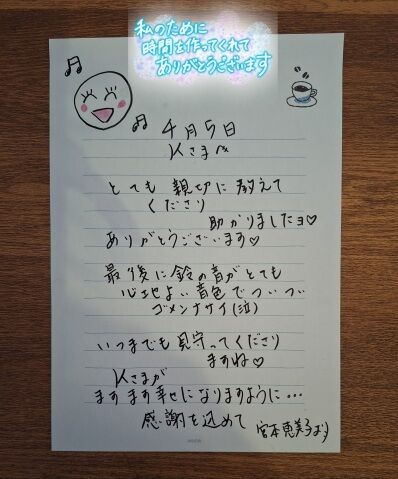 私のために
時間を作ってくれて
ありがとうございます
4月5日
Kさまへ
とても 親切に 教えて
くださり
助かりましたヨ♡
ありがとうございます♡
最後に鈴の音がとても
心地よい音色でついつい
ゴメンナサイ(泣)
いつまでも見守ってくださり
ますね♡
Kさまが
ますます幸せになりますように…
感謝を込めて
宮本恵美子より